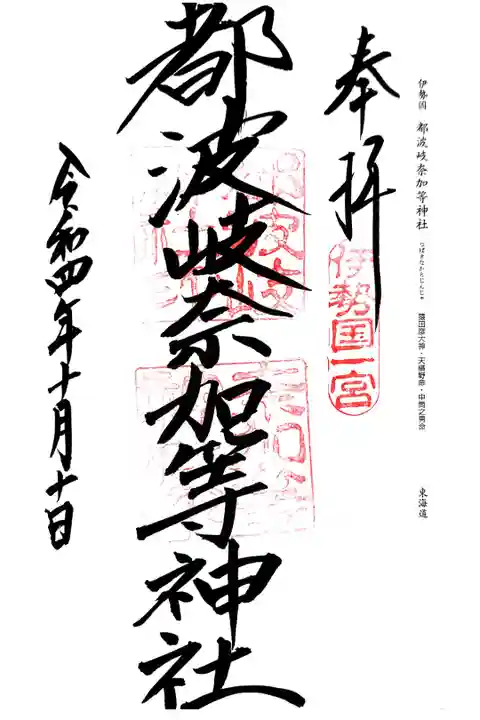 伊勢国 都波岐奈加等神社 つばきなかとじんじゃ 猿田彦大神・天椹野命・中筒之男命 東海道
奉拝
伊勢国一宮
都波岐奈加等神社
令和四年十月十日